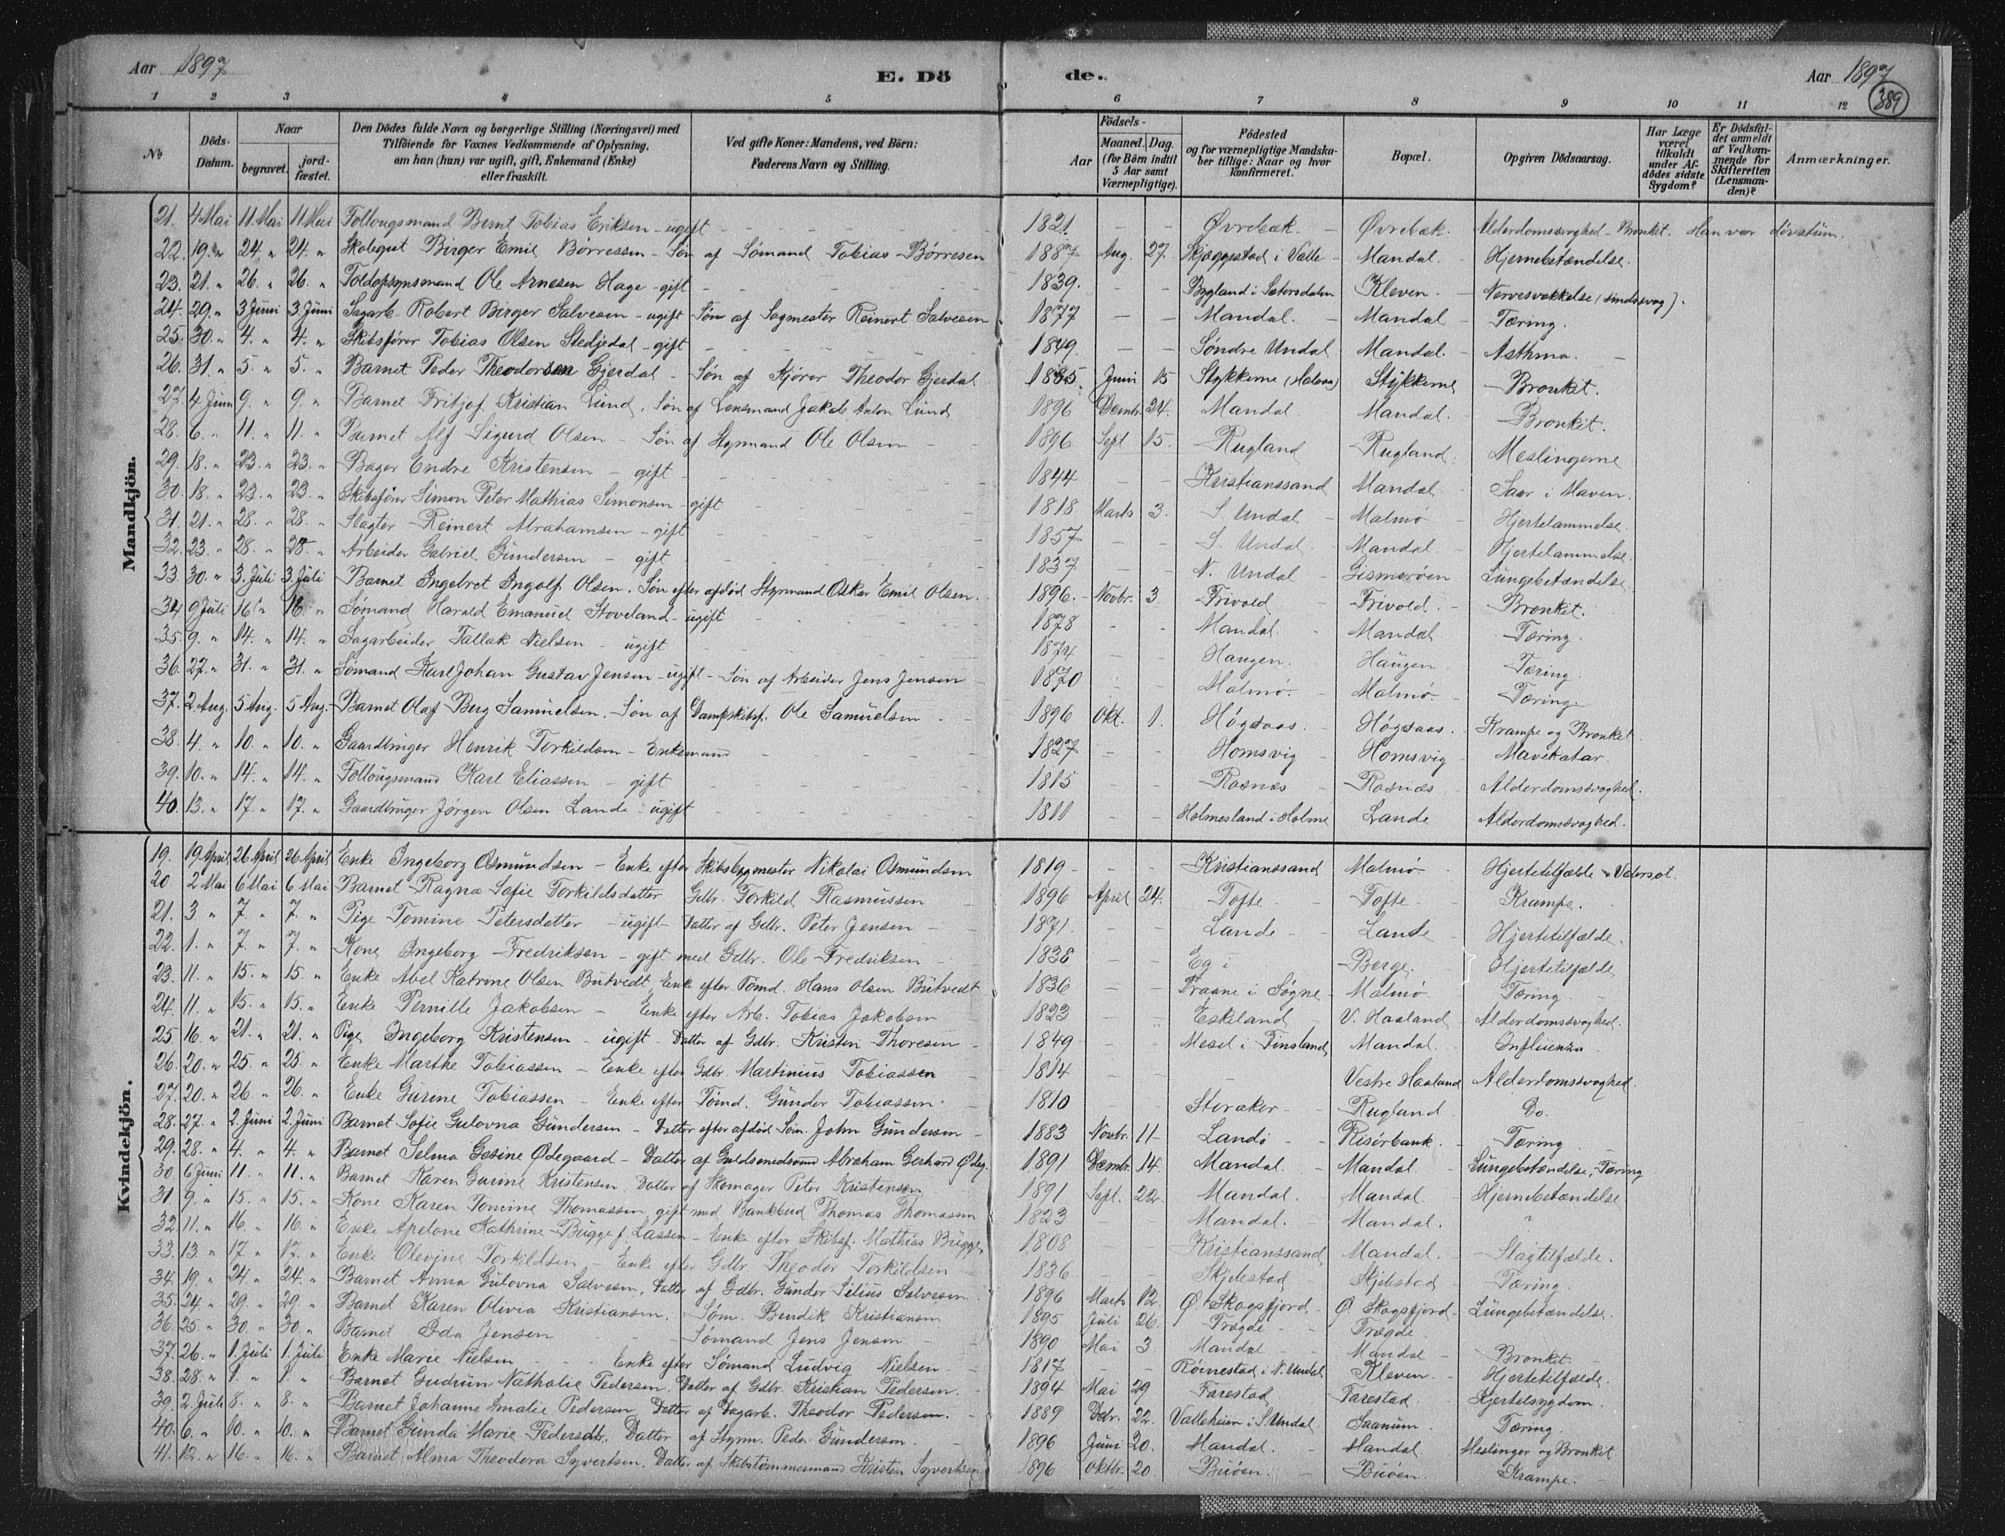 Aar 1897 E. Dö de. Aar 1897
389
1 2 3 4 5 6 7 8 9 10 11 12
No. Döds-Datum. Naar begravet. jordfæstet. Den Dödes fulde Navn og borgerlige Stilling (Næringsvei) med Tilföiende for Voxnes Vedkommende af Oplysning, om han (hun) var ugift, gift, Enkemand (Enke) eller fraskilt. Ved gifte Koner: Mandens, ved Börn: Faderens Navn og Stilling. Födsels- Aar Maaned. Dag. (for Börn indtil 5 Aar samt Værnepligtige). Födested og for værnepligtige Mandskaber tillige: Naar og hvor konfirmeret. Bopæl. Opgiven Dödsaarsag. Har Læge været tilkaldt under Afdödes sidste Sygdom? Er Dödsfaldet anmeldt af Vedkommende for Skifteretten (Lensmanden)? Anmærkninger.
Mandkjön.
21. 4 Mai 11 Mai 11 Mai Follougsmand Bernt Tobias Eriksen - ugift 1821. Øvrebøk Øvrebøk. Alderdomssvaghed - Bronkit. Han var døvstum.
22. 19. " 24. " 24. " Skolegut Birger Emil Børressen - Søn af Sømand Tobias Børresen 1887 Aug. 27. Skjæggestad i Valle Mandal. Hjernebetændelse.
23. 21. " 26. " 26. " Toldopsynsmand Ole Arnesen Hage - gift 1839. Bygland i Sætersdalen Kleven. Nervesvækkelse (sindssvag).
24. 29. " 3 Juni 3 Juni Sagarb. Robert Birger Salvesen - ugift Søn af Sagmester Reinert Salvesen 1877 Mandal. Mandal Tæring.
25. 30. " 4. " 4. " Skibsfører Tobias Olsen Stedjedal - gift 1849. Søndre Undal Mandal. Asthma.
26. 31. " 5. " 5. " Barnet Peder Theodorsen Gjerdal - Søn af Kjører Theodor Gjerdal 1885. Juni 15 Stykkerne (Holum) Stykkerne Bronkit.
27. 4 Juni 9. " 9. " Barnet Fritjof Kristian Lund. Søn af Lensmand Jakob Anton Lund 1896 Decmbr. 24. Mandal. Mandal. Bronkit.
28. 6. " 11. " 11. " Barnet Alf Sigurd Olsen - Søn af Styrmand Ole Olsen 1896 Sept 15. Rugland Rugland. Meslingerne
29. 18. " 23. " 23. " Bager Endre Kristensen - gift 1844 Kristianssand Mandal. Saar i Maven.
30. 18. " 23. " 23. " Skibsfører Simon Peter Mathias Simonsen - gift 1818 Marts 3. S. Undal Malmø Hjertelammelse.
31. 21. " 28. " 28. " Slagter Reinert Abrahamsen - gift 1857 S. Undal. Mandal. Hjertelammelse.
32. 23. " 28. " 28. " Arbeider Gabriel Gundersen - gift 1837 N. Undal Gismerøen Lungebetændelse.
33. 30. " 3. Juli 3. Juli Barnet Ingebret Ingolf Olsen. Søn efter afdød Styrmand Oskar Emil Olsen. 1896. Novbr. 3. Frivold Frivold. Bronket.
34. 9 Juli 16. " 16. " Sømand Harald Emanuel Stoveland - ugift 1878 Mandal. Mandal Tæring.
35. 9. " 14. " 14. " Sagarbeider Tallak Nielsen - ugift 1874 Haugen. Haugen Tæring.
36. 27. " 31. " 31. " Sømand Karl Johan Gustav Jensen - ugift - Søn af Arbeider Jens Jensen 1870 Malmø. Malmø Tæring
37. 2 Aug. 5 Aug. 5 Aug. Barnet Olaf Berg Samuelsen. - Søn af Dampskibsf. Ole Samuelsen 1896 Okt. 1. Høgsaas. Høgsaas. Krampe og Bronket.
38. 4. " 10. " 10. " Gaardbruger Henrik Torkildsen - Enkemand 1827 Homsvig Homsvig Mavekatar.
39. 10. " 14. " 14. " Follougsmand Karl Eliassen - gift 1815 Rosnæs Rosnæs Alderdomssvaghed.
40. 13. " 17. " 17. " Gaardbruger Jørgen Olsen Lande - ugift 1811 Holmesland i Holme Lande Alderdomssvaghed.
Kvindekjön.
19. 19 April 26 April 26 April Enke Ingeborg Osmundsen - Enke efter Skibsbygmester Nikolai Osmundsen 1819 Kristianssand Malmø Hjertetilfælde - Vatersot.
20. 2 Mai 6 Mai 6 Mai Barnet Ragna Sofie Torkildsdatter Gdbr. Torkild Rasmussen 1896 April 24. Tofte Tofte Krampe.
21. 3 " 7 " 7. " Pige Tomine Petersdatter - ugift - Datter af Gdbr. Peter Jensen 1871. Lande Lande Hjertetilfælde.
22. 1. " 7 " 7. " Kone Ingeborg Fredriksen - gift med Gdbr. Ole Fredriksen 1838 Eg i Berge. Hjertetilfælde
23. 11. " 15. " 15. " Enke Abel Katrine Olsen Butvedt, Enke efter Tømd. Hans Olsen Butvedt 1836 Traane i Søgne Malmø Tæring.
24. 11. " 15. " 15. " Enke Pernille Jakobsen - Enke efter Arb. Tobias Jakobsen 1823 Eskeland V. Haaland Alderdomssvaghed.
25. 16. " 21. " 21. " Pige Ingeborg Kristensen - ugift. Datter af Gdbr. Kristen Thoresen 1849 Mesel i Finsland Mandal. Influenza
26. 20. " 25. " 25. " Enke Marthe Tobiassen - Enke efter Gdbr Martinius Tobiassen 1814 Vestre Haaland Alderdomssvaghed.
27. 20. " 26. " 26. " Enke Gurine Tobiassen - Enke efter Tømd. Gunder Tobiassen. 1810 Storaker Rugland Do.
28. 27. " 2 Juni 2 Juni Barnet Sofie Gulovna Gundersen - Datter efter afdød Søm. John Gundersen 1883 Novbr. 11 Landø Risørbank. Tæring
29. 28. " 4. " 4. " Barnet Selma Gesine Ødegaard - Datter af Guldsmedsvend Abraham Gerhard Ødeg. 1891 Decmbr. 14. Mandal. Mandal Lungebetændelse, Tæring
30. 6 Juni 11. " 11. " Barnet Karen Gurine Kristensen. Datter af Skomager Peter Kristensen 1891 Sept. 22. Mandal. Mandal Hjernebetændelse
31. 9. " 15. " 15. " Kone Karen Tomine Thomassen, gift med Bankbud Thomas Thomassen 1823 Mandal. Mandal. "
32. 11. " 16. " 16. " Enke Apelone Kathrine Bugge f. Lassen - Enke efter Skibsf. Mathias Bugge 1808 Kristianssand Mandal. Slagtilfælde.
33. 13 " 17. " 17. " Enke Olevine Torkildsen - Enke efter Gdbr Theodor Torkildsen 1836 Skjebstad Skjebstad Tæring.
34. 19. " 24. " 24. " Barnet Anna Gulovna Salvesen, Datter af Gdbr. Gunder Silius Salvesen 1896 Marts 12. Ø. Skogsfjord Ø. Skogsfjord Lungebetændelse.
35. 24. " 29. " 29. " Barnet Karen Olivia Kristiansen. Søm. Bendik Kristiansen 1895 Juli 26. Trægde Trægde.
36. 25 " 30. " 30. " Barnet Ida Jensen Sømand Jens Jensen 1890 Mai 3 Mandal Mandal Bronket.
37. 26. " 1. Juli 1. Juli Enke Marie Nielsen Enke efter Sømand Ludvig Nielsen 1817 Røinestad i N. Undal Kleven. Hjertetilfælde.
38. 28. " 1. " 1. " Barnet Gudrun Nathalie Pedersen. Datter af Gdbr. Kristian Pedersen. 1894 Mai 29 Farestad Farestad Hjertesygdom.
39. 2 Juli 8. " 8. " Barnet Johanne Amalie Pedersen, Datter af Dagarb. Theodor Pedersen. 1889 22. Valleheien i S. Undal Saanum Tæring
40. 6. " 10. " 10. " Barnet Gunda Marie Pedersdtr. Datter af Styrm. Peder Gundersen. 1896 Juni 20. Mandal. Mandal Meslinger og Bronket
41. 12. " 16. " 16. " Barnet Alma Theodora Syvertsen. Datter af Skibstømmermand Kristen Syvertsen 1896 Oktbr. 20. Buøen. Buøen. Krampe.